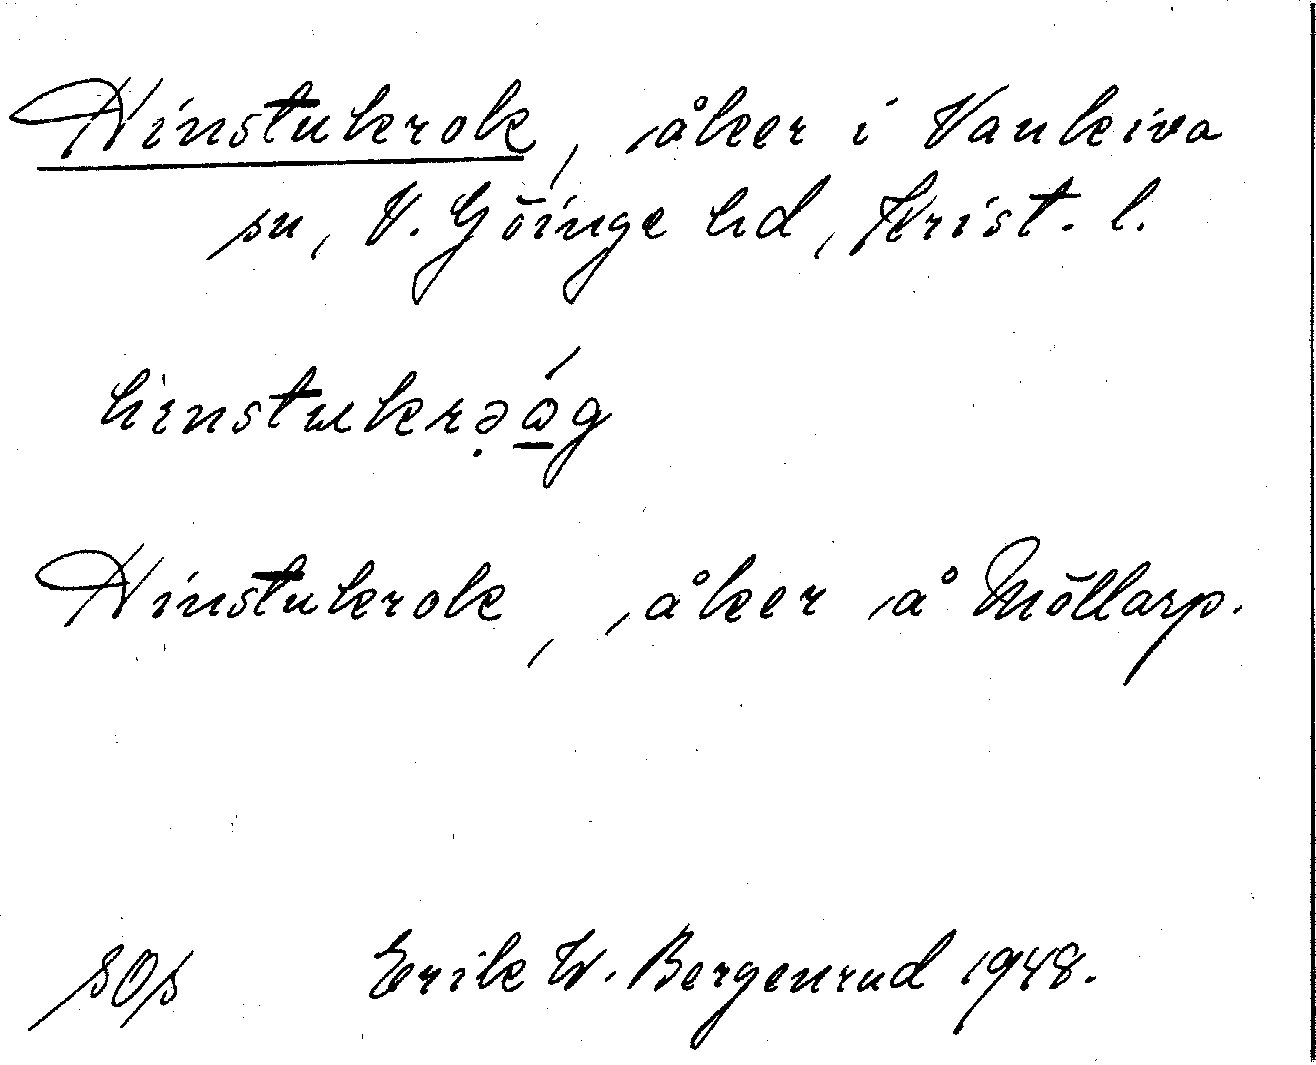 Hinstukrok, åker i Vankiva
sn, V. Göinge hd, Krist. l.
hinstukrə̣ó̱g
Hinstukrok, åker å Möllarp.
Erik W. Bergenrud 1948.